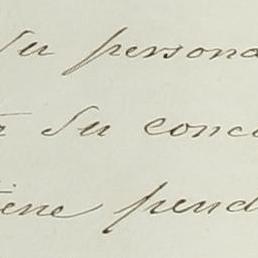 Su persona
Su conc
tiene pend